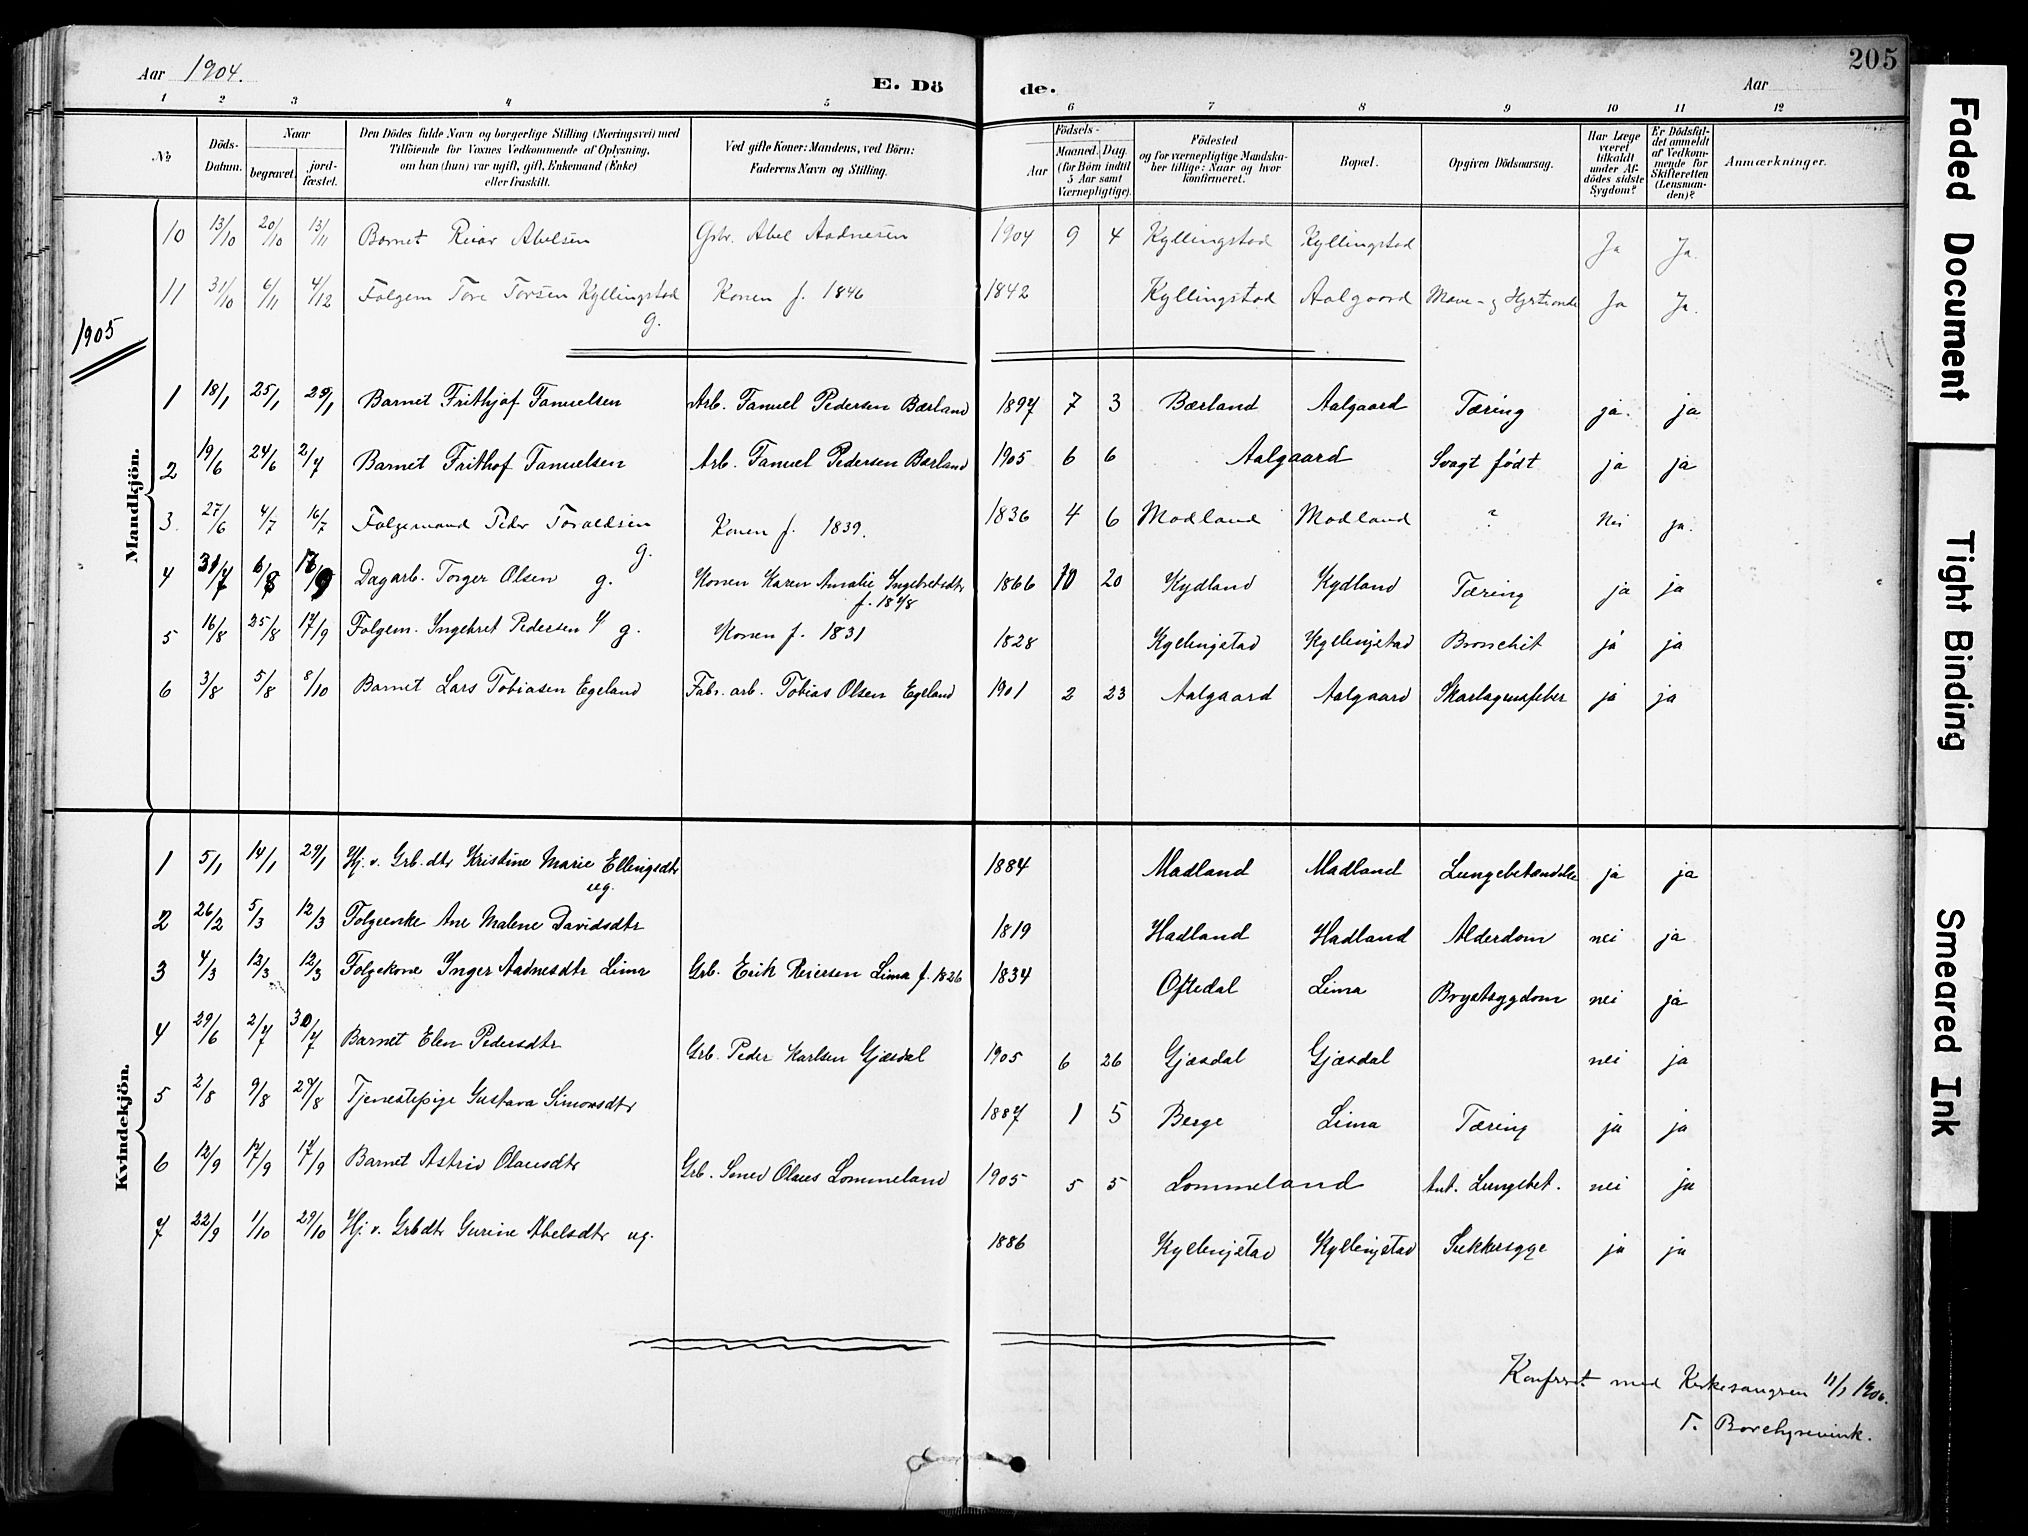 205
Aar 1904.
E. Dö de.
Aar
1 2 3 4 5 6 7 8 9 10 11 12
No
Döds-Datum.
Naar
begravet.
jordfæstet.
Den Dödes fulde Navn og borgerlige Stilling (Næringsvei) med Tilföiende for Voxnes Vedkommende af Oplysning, om han (hun) var ugift, gift, Enkemand (Enke) eller fraskilt.
Ved gifte Koner: Mandens, ved Börn: Faderens Navn og Stilling.
Födsels-
Aar
Maaned. Dag.
(for Börn indtil 5 Aar samt Værnepligtige).
Födested og for værnepligtige Mandskaber tillige: Naar og hvor konfirmeret.
Bopæl.
Opgiven Dödsaarsag.
Har Læge været tilkaldt under Afdödes sidste Sygdom?
Er Dödsfaldet anmeldt af Vedkommende for Skifteretten (Lensmanden)?
Anmærkninger.
Mandkjön.
10 13/10 20/10 13/11 Barnet Reiar Abelsen Gbr. Abel Aadnesen 1904 9 4 Kyllingstad Kyllingstad Ja Ja.
11 31/10 6/11 4/12 Folgem Tore Torsen Kyllingstad g. Konen f. 1846 1842 Kyllingstad Aalgaard Mave- og Ja Ja.
1905
1 18/1 25/1 29/1 Barnet Frithjof Tanuelsen Arb. Tanuel Pedersen Bærland 1897 7 3 Bærland Aalgaard Tæring ja. ja
2 19/6 24/6 2/7 Barnet Frithof Tanuelsen Arb. Tanuel Pedersen Bærland 1905 6 6 Aalgaard Svagt født ja ja
3. 27/6 4/7 16/7 Folgemand Peder Toraldsen g. Konen f. 1839. 1836 4 6 Modland Modland ? Nei ja.
4 31/7 6/8 17/9 Dagarb. Torger Olsen g. Konen Karen Amalie Ingebretsdtr f. 1878 1866 10 20 Kydland Kydland Tæring ja ja
5 16/8 25/8 17/9 Folgem. Ingebret Pedersen g. Konen f. 1831 1828 Kyllingstad Kyllingstad Bronchit ja ja
6 3/8 5/8 8/10 Barnet Lars Tobiasen Egeland Fabr. arb. Tobias Olsen Egeland 1901 2 23 Aalgaard Aalgaard Skarlagensfeber ja ja
Kvindekjön.
1 5/1 14/1 29/1 Hj. v. Grb. dtr Kristine Marie Ellingsdtr ug. 1884 Madland Madland Lungebetændelse ja ja
2 26/2 5/3 12/3 Folgeenke Ane Malene Davidsdtr 1819 Hadland Hadland Alderdom nei ja
3 4/3 12/3 12/3 Folgekone Inger Aadnesdtr Lima Grb. Erik Reiersen Lima f. 1826 1834 Oftedal Lima Brystsygdom nei ja
4 29/6 2/7 30/7 Barnet Elen Pedersdtr Grb. Peder Karlsen Gjæsdal 1905 6 26 Gjæsdal Gjæsdal nei ja
5 2/8 9/8 27/8 Tjenestepige Gustava Simonsdtr 1887 1 5 Berge Lima Tæring ja ja
6 12/9 17/9 17/9 Barnet Astrid Olausdtr Grb. Smed Olaus Lommeland 1905 5 5 Lommeland Ant. Lungebet. nei ja
7 22/9 1/10 29/10 Hj. v. Grbdtr Gurine Abelsdtr ug. 1886 Kyllingstad Kyllingstad Sukkersyge ja ja
Konfreret med Kirkesangeren 11/1 1906.
T.
Faded Document
Tight Binding
Smeared Ink